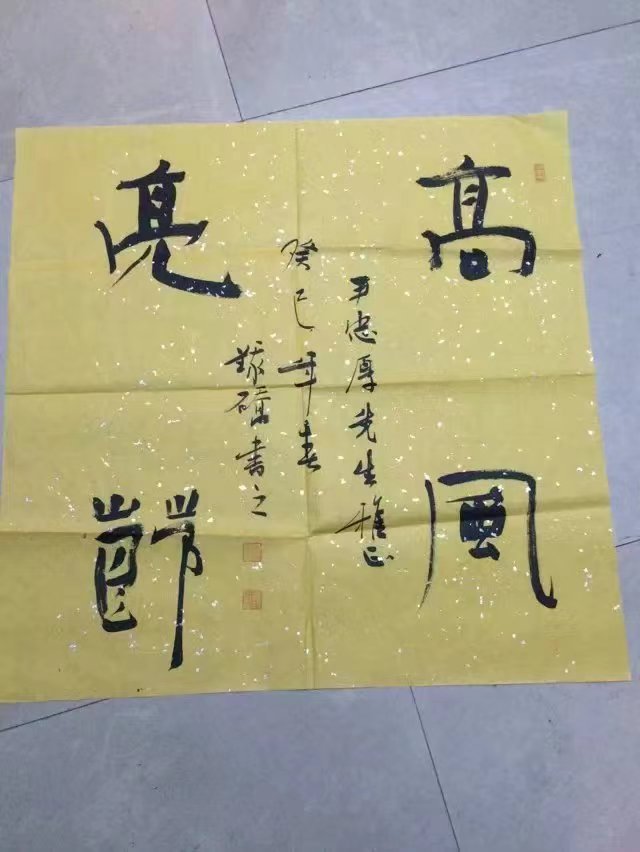 高風
亮節
王忠厚先生雅正
癸巳年春
書之